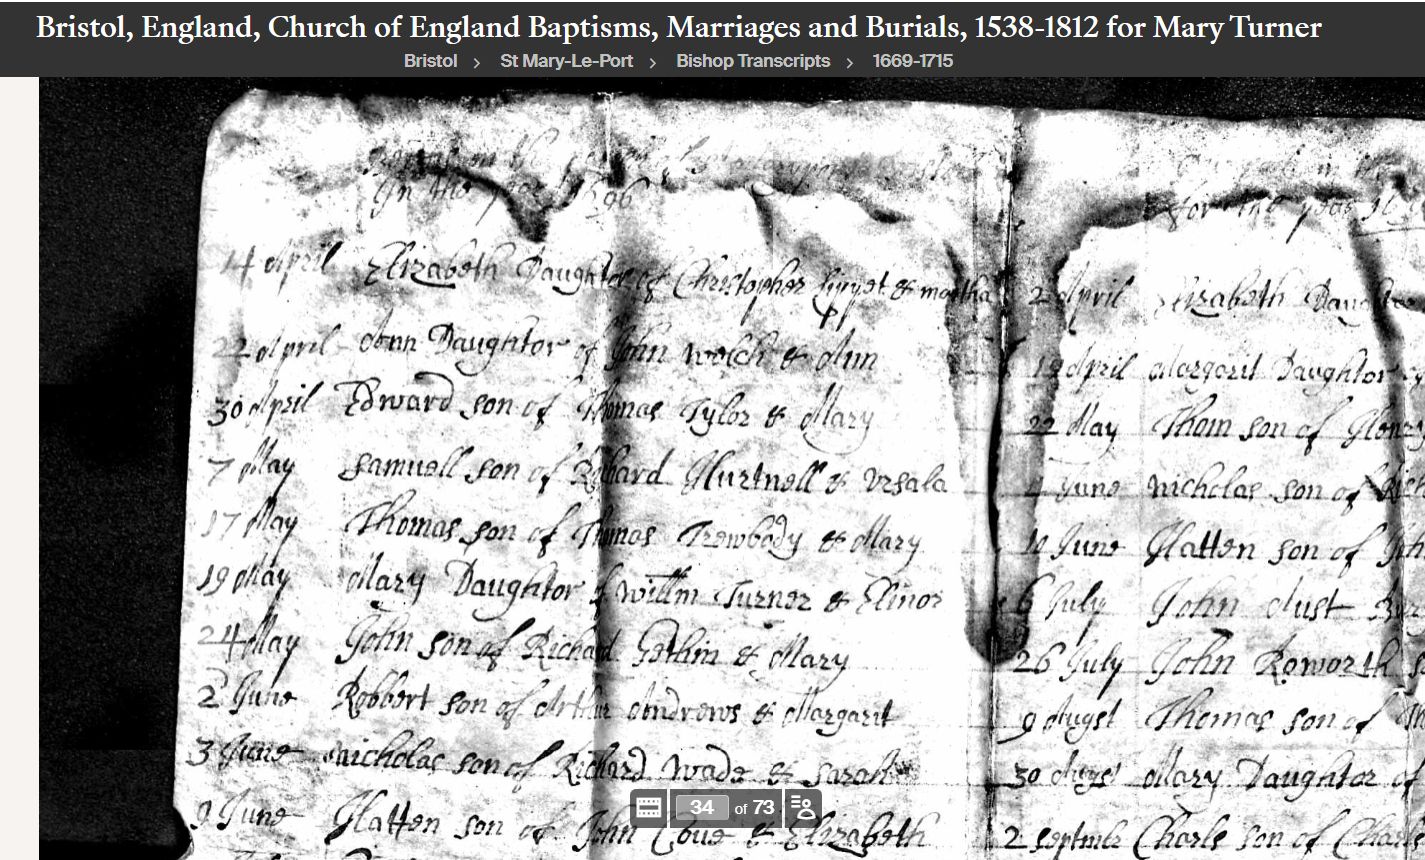 Bristol, England, Church of England Baptisms, Marriages and Burials, 1538-1812 for Mary Turner
Bristol > St Mary-Le-Port > Bishop Transcripts > 1669-1715
In the 1696
14 April Elizabeth Daughter of Christopher & martha
22 April Ann Daughtor of John Welch & Ann
30 April Edward son of Thomas Tylor & Mary
7 May Samuell son of Robard & Vrsala
17 May Thomas son of Thomas Trewbody & Mary
19 May Mary Daughtor of Willm Turner & Elinor
24 May John son of Richard & Mary
2 June Robbert son of Arthur Andrews & Margarit
3 June Nicholas son of Richard Wade & Sarah
9 June Hatten son of John Coue & Elizabeth
for the year
2 April Elizabeth Daughtor
19 April Margarit Daughtor of
22 May Thom son of
June Nicholas son of
June Hatten son of
6 July John
26 July John Roworth
9 Augst Thomas son of
30 Augst Mary Daughtor of
2 Septmbr Charls son of
34 of 73